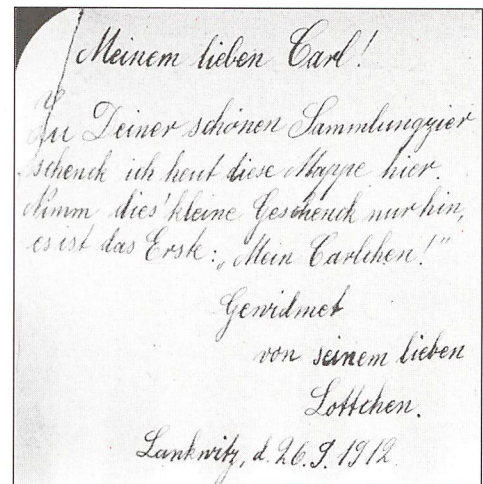 Meinem lieben Carl!
Zu Deiner schönen Sammlungzier
schenck ich heut diese Mappe hier.
Nimm dies' kleine Geschenck nur hin,
es ist das Erste: „Mein Carlchen!"
Gewidmet
von seinem lieben
Lottchen.
Lankwitz, d. 26.9.1912.